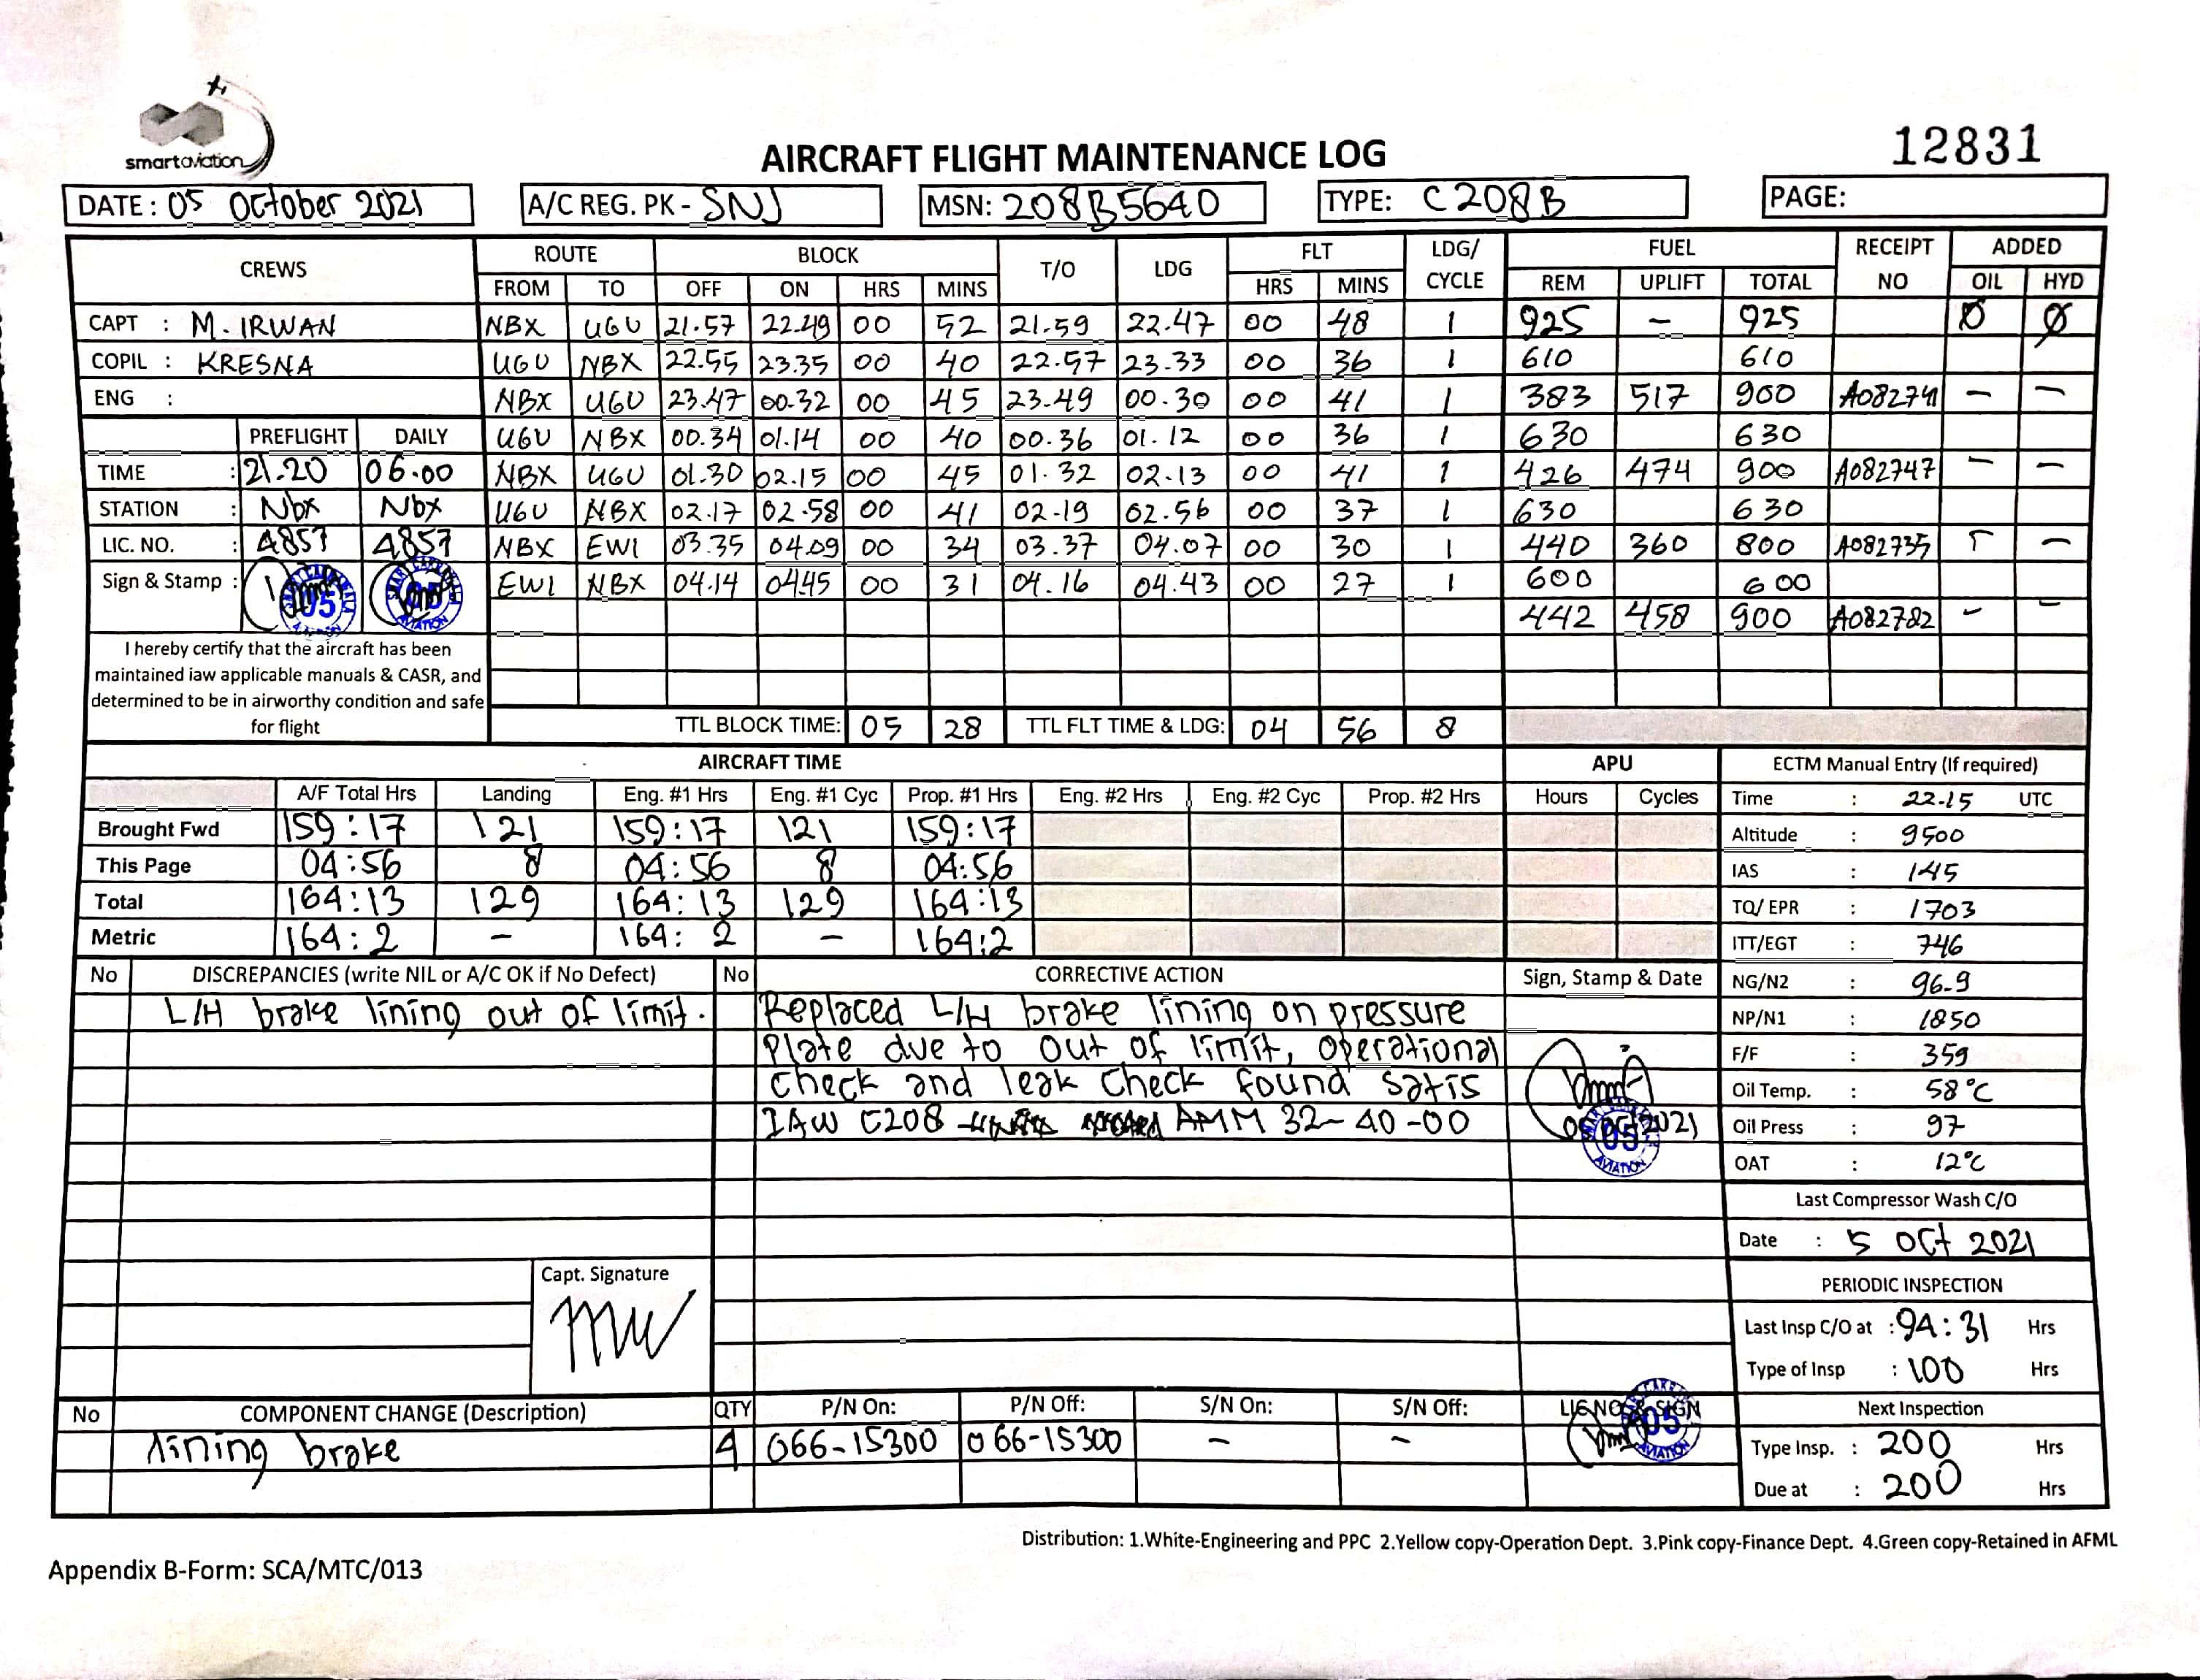 smart aviation
AIRCRAFT FLIGHT MAINTENANCE LOG
12831
DATE: 05 October 2021 A/C REG. PK - SNJ MSN: 208B5640 TYPE: C208B PAGE:
CREWS ROUTE BLOCK T/O LDG FLT LDG/ CYCLE FUEL RECEIPT NO ADDED
FROM TO OFF ON HRS MINS HRS MINS REM UPLIFT TOTAL OIL HYD
CAPT : M. IRWAN NBX UGU 21.57 22.49 00 52 21.59 22.47 00 48 1 925 - 925 Ø Ø
COPIL : KRESNA UGU NBX 22.55 23.35 00 40 22.57 23.33 00 36 1 610 610
ENG : NBX UGU 23.47 00.32 00 45 23.49 00.30 00 41 1 383 517 900 A082741 - -
PREFLIGHT DAILY UGU NBX 00.34 01.14 00 40 00.36 01.12 00 36 1 630 630
TIME : 21.20 06.00 NBX UGU 01.30 02.15 00 45 01.32 02.13 00 41 1 426 474 900 A082747 - -
STATION : Nbx Nbx UGU NBX 02.17 02.58 00 41 02.19 02.56 00 37 1 630 630
LIC. NO. : 4857 4857 NBX EWI 03.35 04.09 00 34 03.37 04.07 00 30 1 440 360 800 A082735 - -
Sign & Stamp : EWI NBX 04.14 0445 00 31 04.16 04.43 00 27 1 600 600
442 458 900 A082782 - -
I hereby certify that the aircraft has been
maintained iaw applicable manuals & CASR, and
determined to be in airworthy condition and safe
for flight
TTL BLOCK TIME: 05 28 TTL FLT TIME & LDG: 04 56 8
AIRCRAFT TIME APU ECTM Manual Entry (If required)
A/F Total Hrs Landing Eng. #1 Hrs Eng. #1 Cyc Prop. #1 Hrs Eng. #2 Hrs Eng. #2 Cyc Prop. #2 Hrs Hours Cycles Time : 22.15 UTC
Brought Fwd 159:17 121 159:17 121 159:17 Altitude : 9500
This Page 04:56 8 04:56 8 04:56 IAS : 145
Total 164:13 129 164:13 129 164:13 TQ/ EPR : 1703
Metric 164:2 - 164:2 - 164:2 ITT/EGT : 746
No DISCREPANCIES (write NIL or A/C OK if No Defect) No CORRECTIVE ACTION Sign, Stamp & Date NG/N2 : 96.9
L/H brake lining out of limit. Replaced L/H brake lining on pressure NP/N1 : 1850
Plate due to out of limit, operational F/F : 359
check and leak check found satis Oil Temp. : 58°C
IAW C208 AMM 32-40-00 2021 Oil Press : 97
OAT : 12°C
Last Compressor Wash C/O
Date : 5 Oct 2021
Capt. Signature PERIODIC INSPECTION
Last Insp C/O at : 94:31 Hrs
Type of Insp : 100 Hrs
No COMPONENT CHANGE (Description) QTY P/N On: P/N Off: S/N On: S/N Off: LIC NO & SIGN Next Inspection
lining brake 4 066-15300 066-15300 - - Type Insp. : 200 Hrs
Due at : 200 Hrs
Distribution: 1.White-Engineering and PPC 2.Yellow copy-Operation Dept. 3.Pink copy-Finance Dept. 4.Green copy-Retained in AFML
Appendix B-Form: SCA/MTC/013